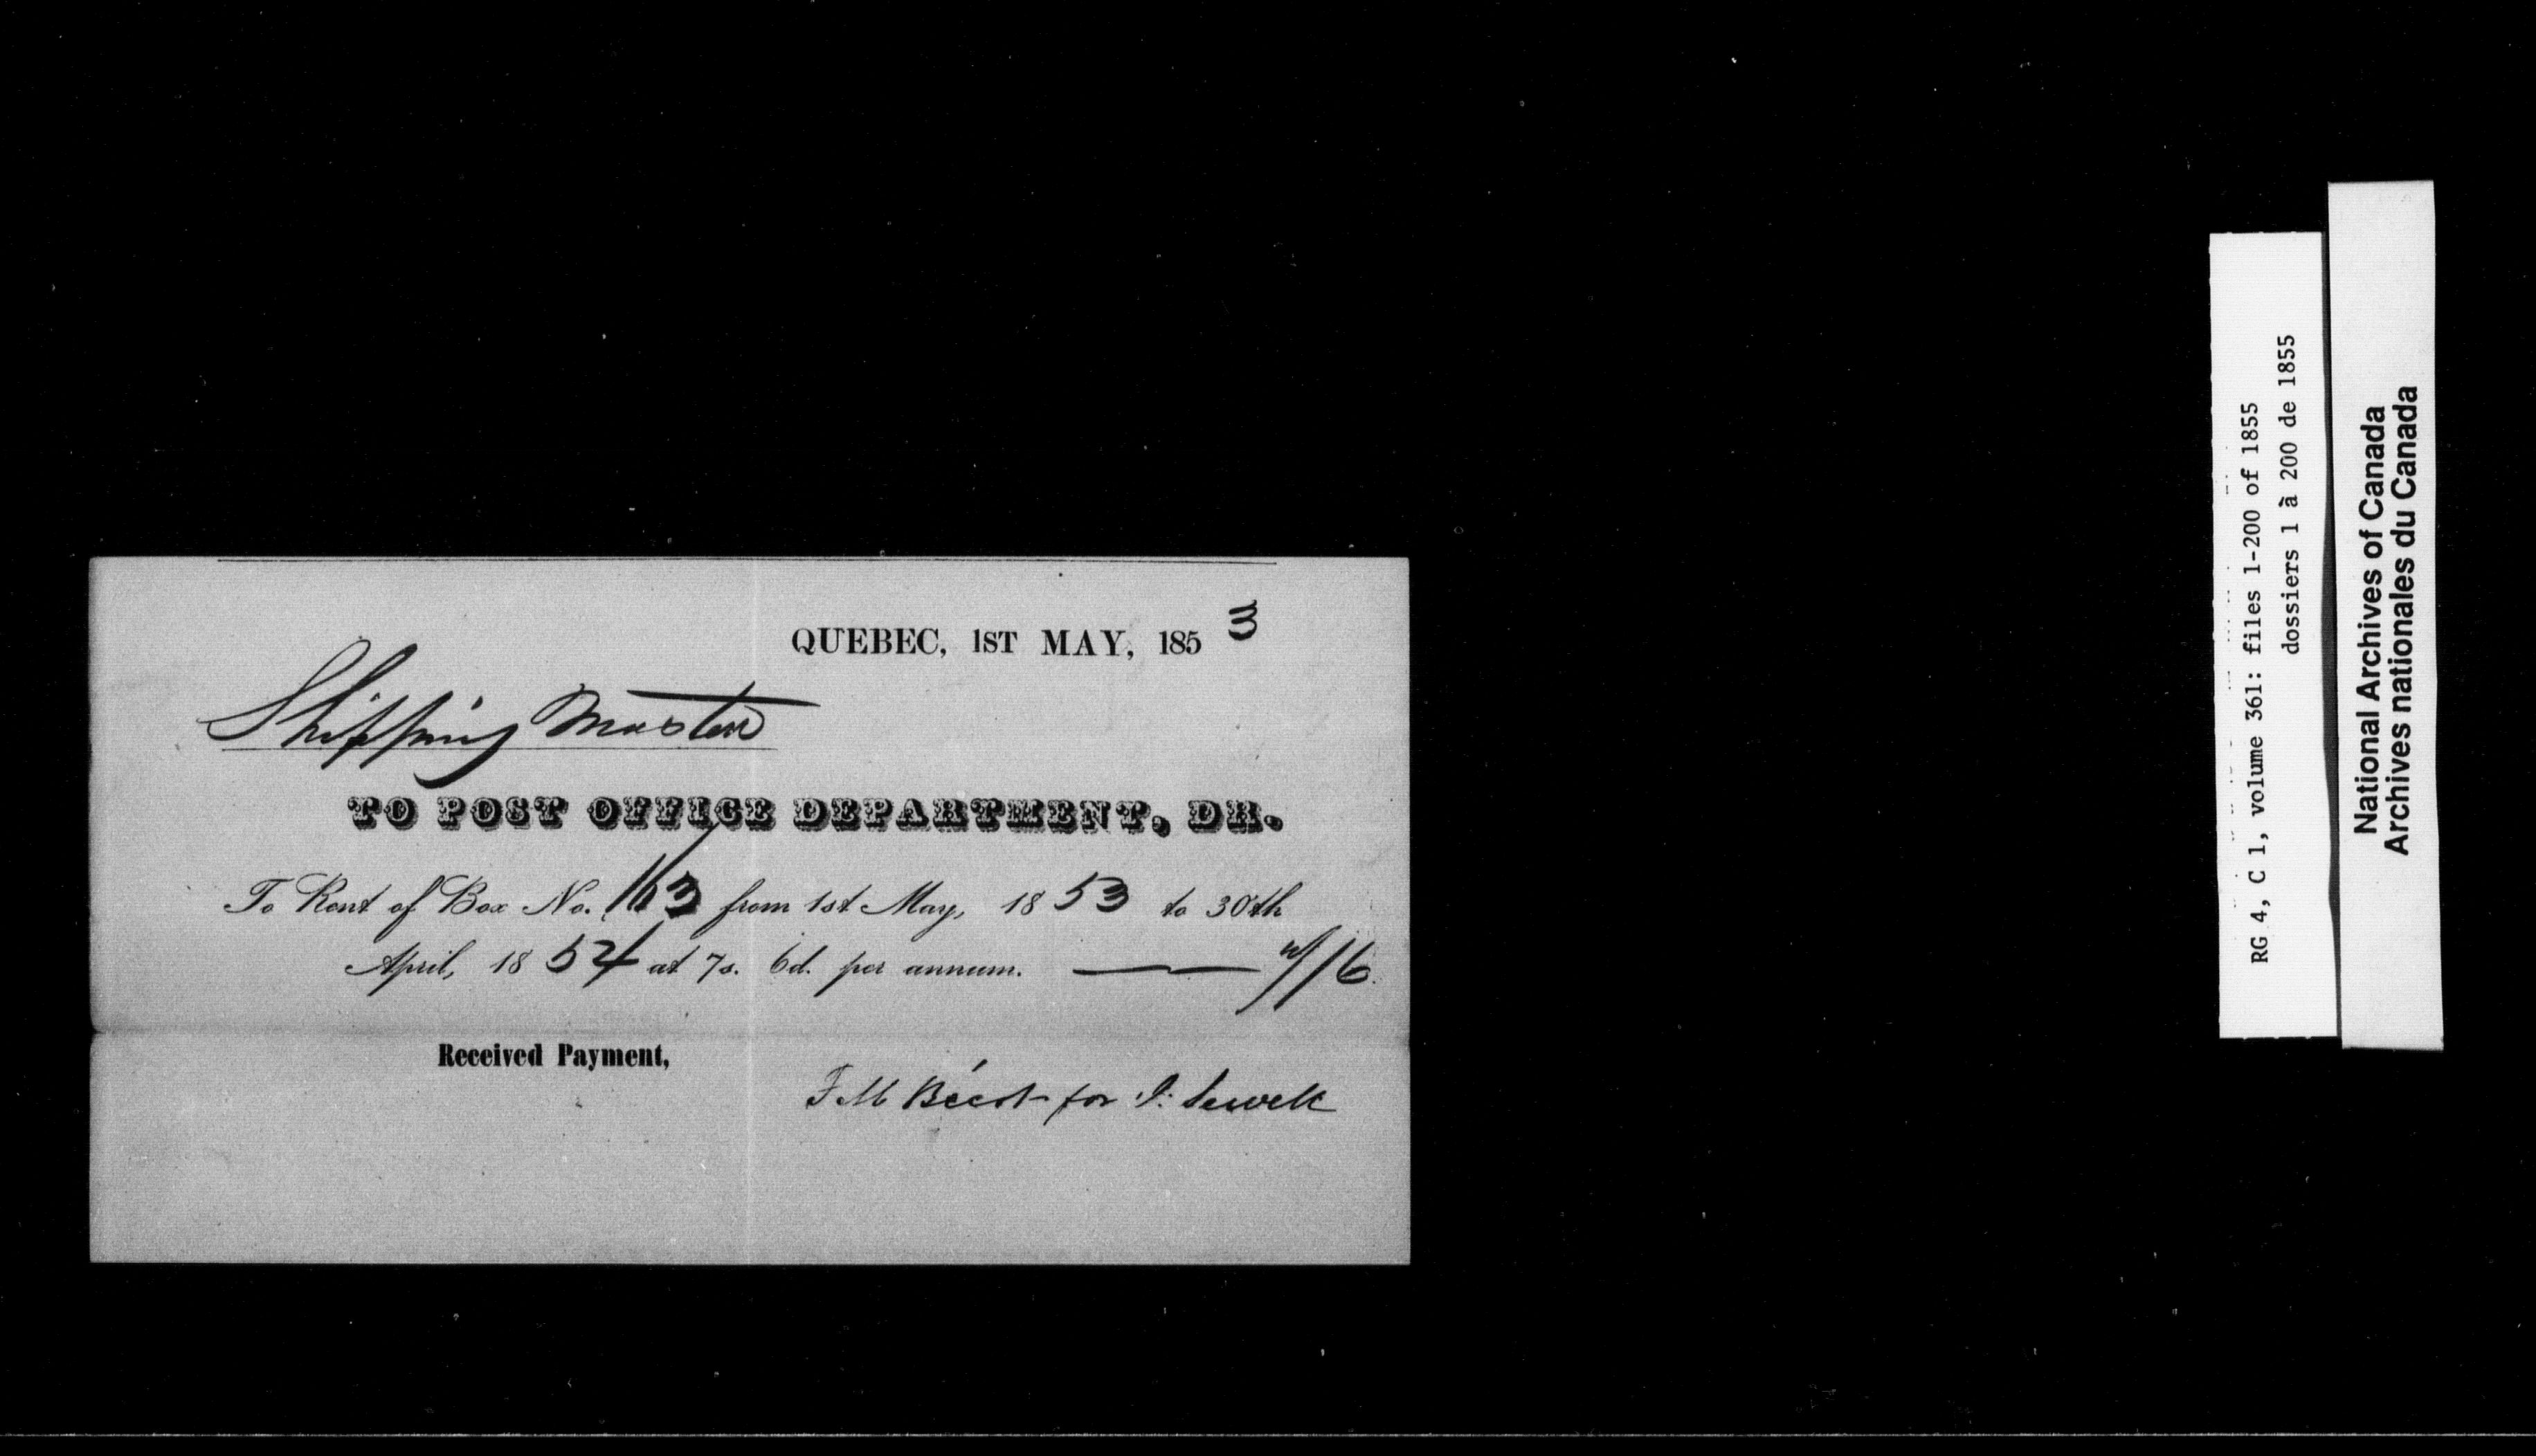 QUEBEC, 1ST MAY, 1853
Shipping Master
TO POST OFFICE DEPARTMENT, DR.
To Rent of Box No. 163 from 1st May, 1853 to 30th
April, 1854 at 7s. 6d. per annum. 7/6.
Received Payment,
F M Bécot for J. Sewell
RG 4, C 1, volume 361: files 1-200 of 1855
dossiers 1 à 200 de 1855
National Archives of Canada
Archives nationales du Canada